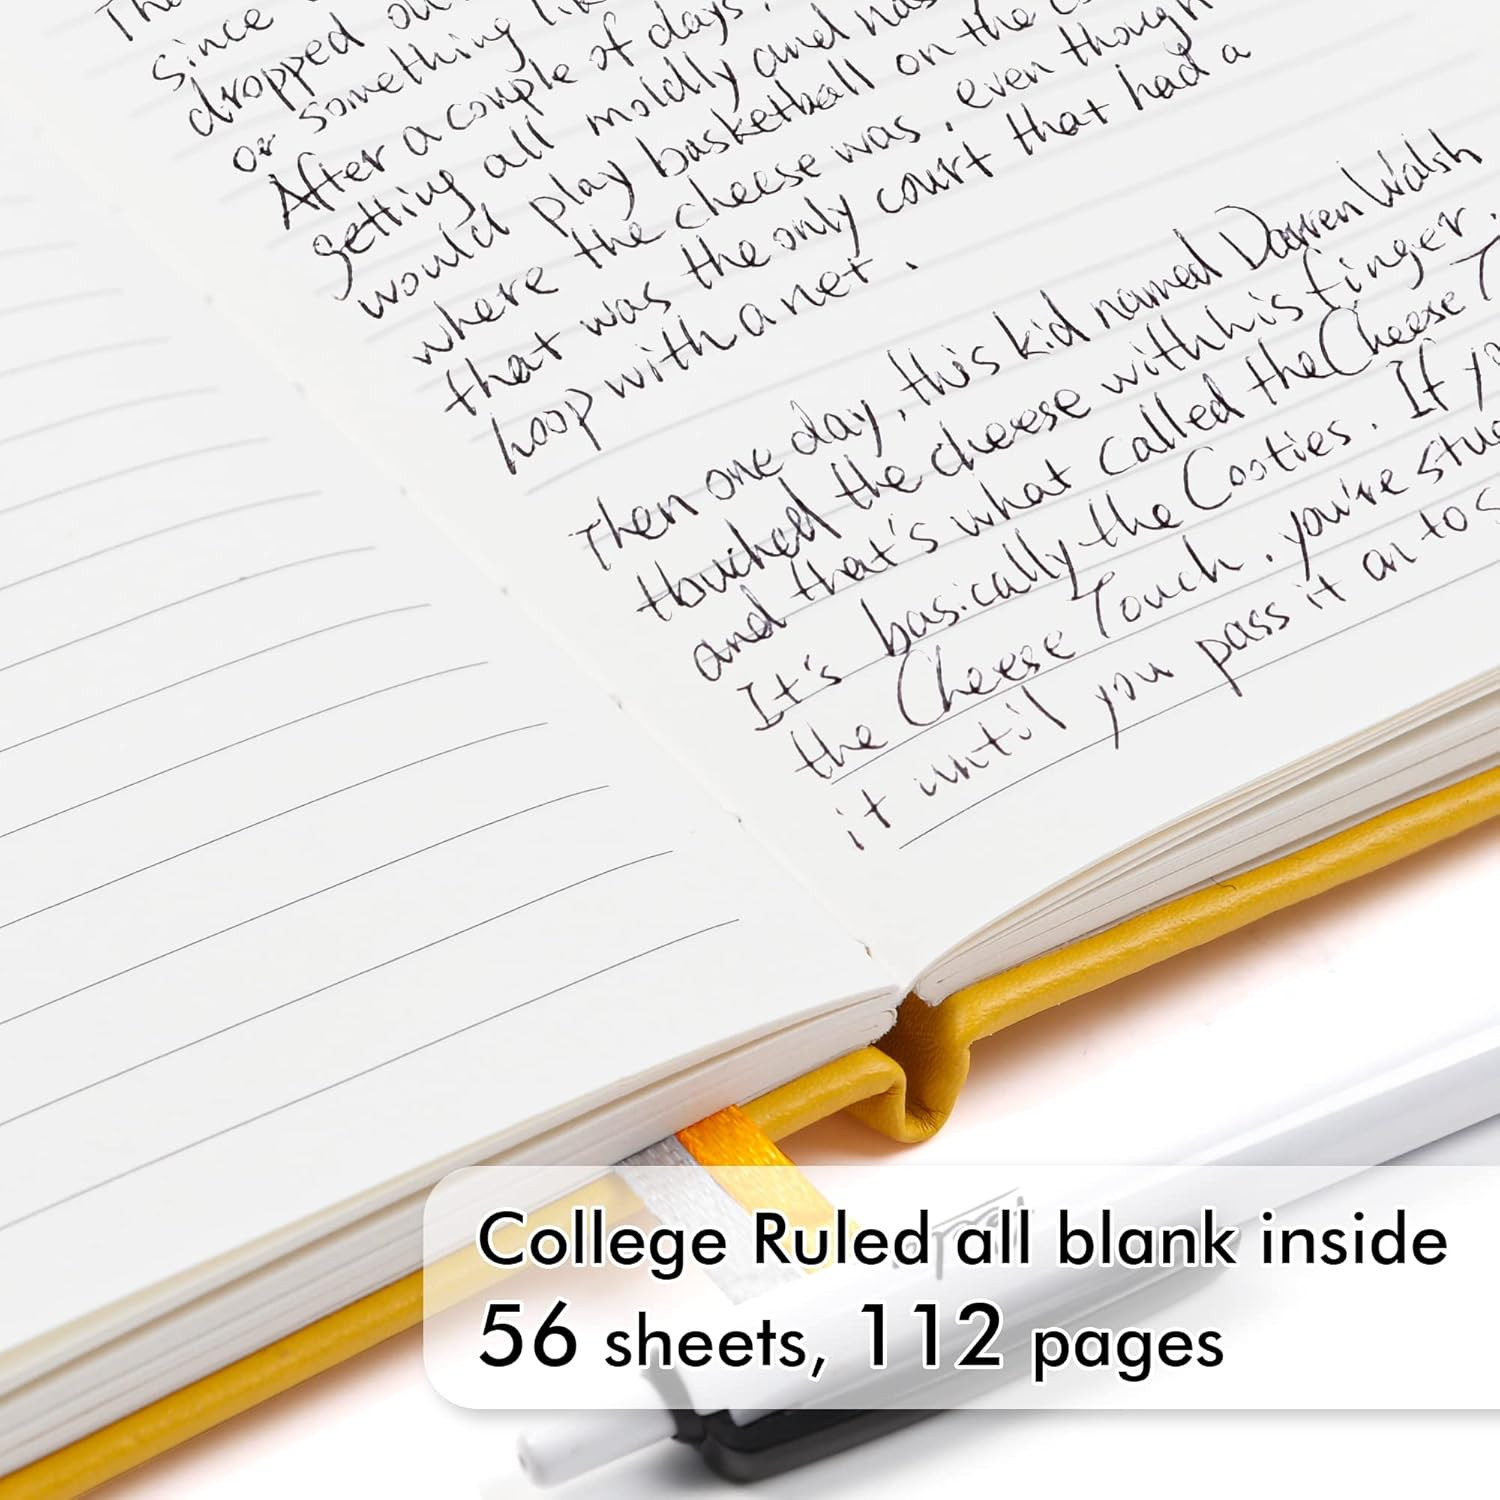 Since
dropped ou
or something li
After a couple of days,
getting all moldly and nas
would play basketball on the c
where the cheese was, even though
that was the only court that had a
hoop with a net.
Then one day, this kid named Darren Walsh
touched the cheese with his finger.
and that's what called the Cheese T
It's basically the Cooties. If yo
the Cheese Touch. you're stu
it until you pass it on to s
College Ruled all blank inside
56 sheets, 112 pages